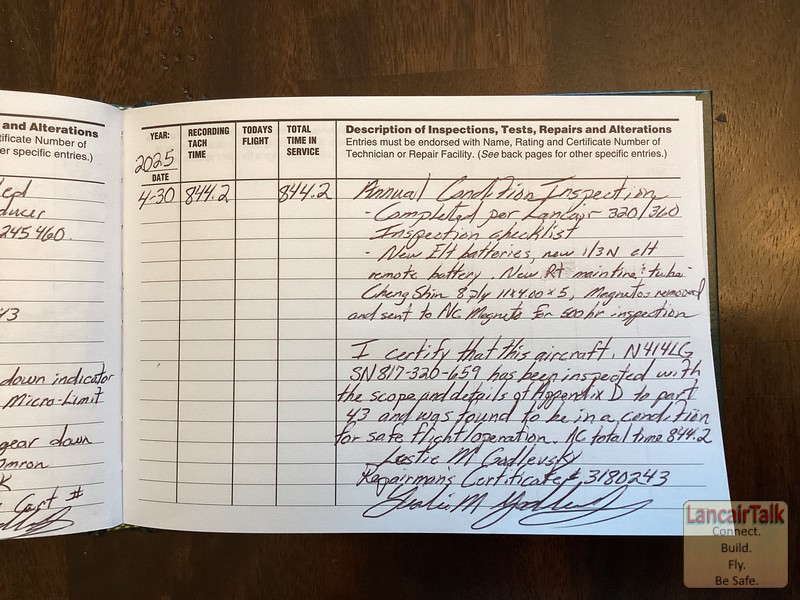 and Alterations
tificate Number of
er specific entries.)
ed
ducer
245460.
43
down indicator
Micro-Limit
gear down
omron
K
Cert #
YEAR:
2025
DATE
RECORDING
TACH
TIME
TODAYS
FLIGHT
TOTAL
TIME IN
SERVICE
Description of Inspections, Tests, Repairs and Alterations
Entries must be endorsed with Name, Rating and Certificate Number of
Technician or Repair Facility. (See back pages for other specific entries.)
4-30 844.2 844.2 Annual Condition Inspection
- Completed per Lancair 320/360
Inspection checklist
- New Elt batteries, new 1/3N elt
remote battery. New Rt maintire & tube
Cheng Shin 8 ply 11x4.00x5, Magnetos removed
and sent to AC Magneto for 500 hr inspection
I certify that this aircraft, N414LG
SN 817-320-659 has been inspected with
the scope and details of Appendix D to part
43 and was found to be in a condition
for safe flight/operation. AC total time 844.2
Leslie M Godlevsky
Repairman's Certificate # 3180243
LancairTalk
Connect.
Build.
Fly.
Be Safe.